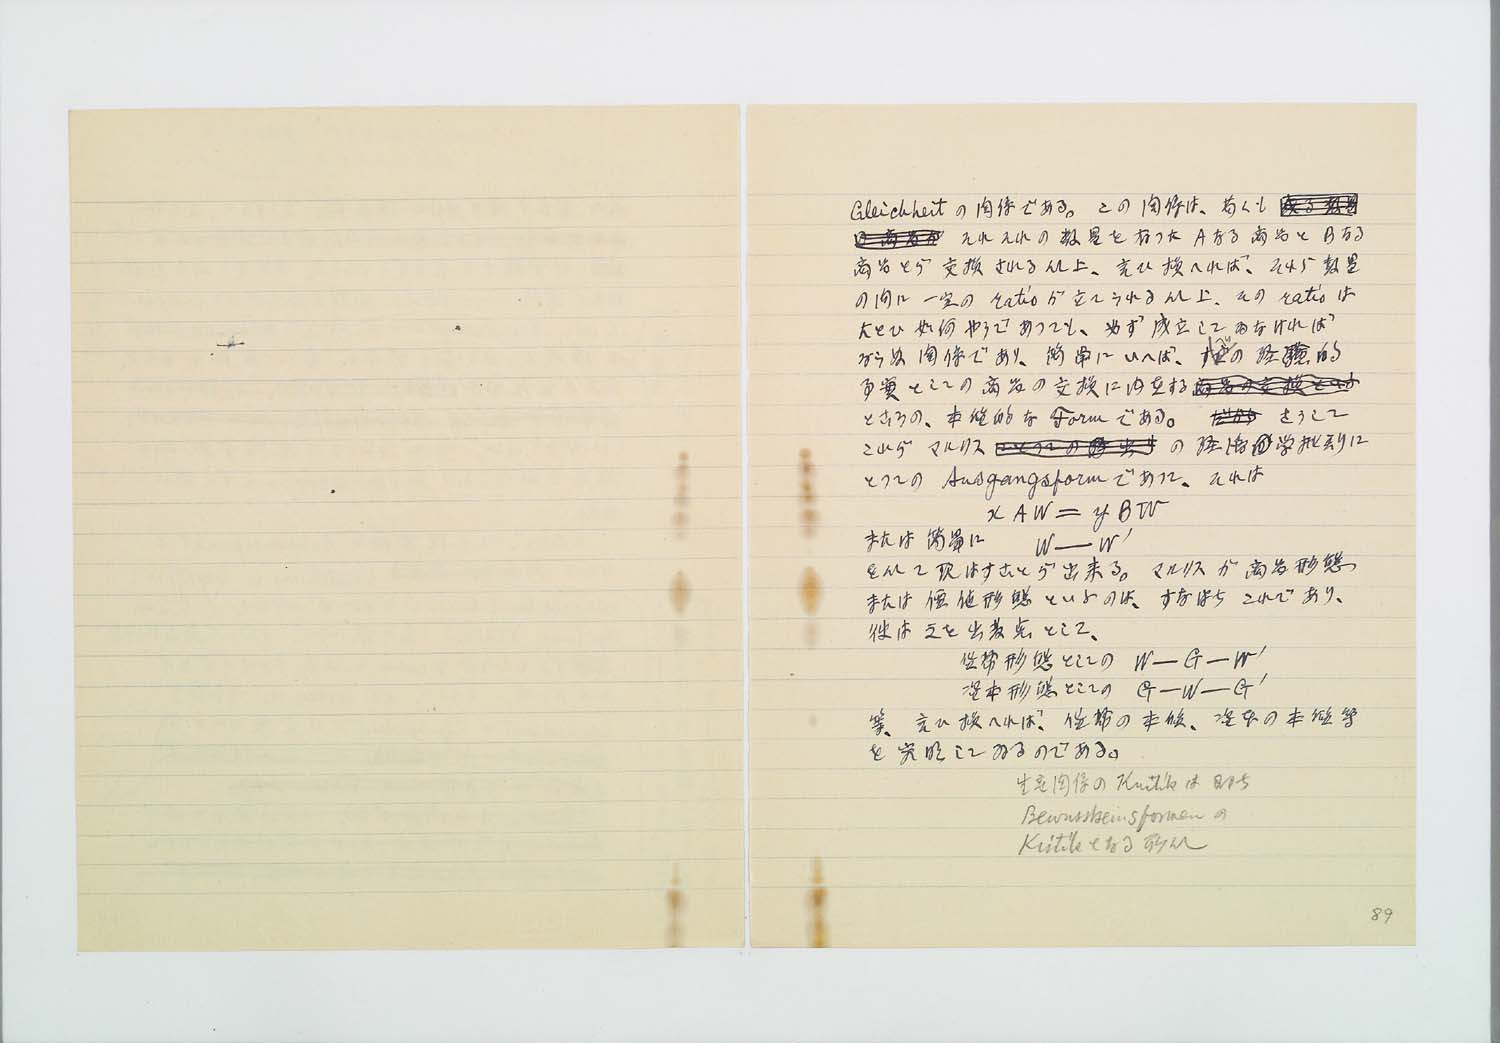 Gleichheit の関係である。この関係は、苟くも
それぞれの数量を有つた A なる商品と B なる
商品とが交換される以上、言ひ換へれば、それら数量
の間に一定の ratio が立てられる以上、その ratio は
たとひ如何やうであつても、必ず成立してゐなければ
ならぬ関係であり、簡単にいへば、の経験的
事実としての商品の交換に内在する
ところの、本姓的な Form である。さうして
これがマルクスの経済学批判に
とつての Ausgangsform であつて、それは
x A W = y B W
または簡単に W — W′
を以て現はすことが出来る。マルクスが商品形態、
または価値形態といふのは、すなはちこれであり、
彼は之を出発点として、
貨幣形態としての W — G — W′
資本形態としての G — W — G′
等、言ひ換へれば、貨幣の本質、資本の本質等
を究明してゐるのである。
生産関係の Kritik は即ち
Bewusstseinsformen の
Kritik となる所以
89